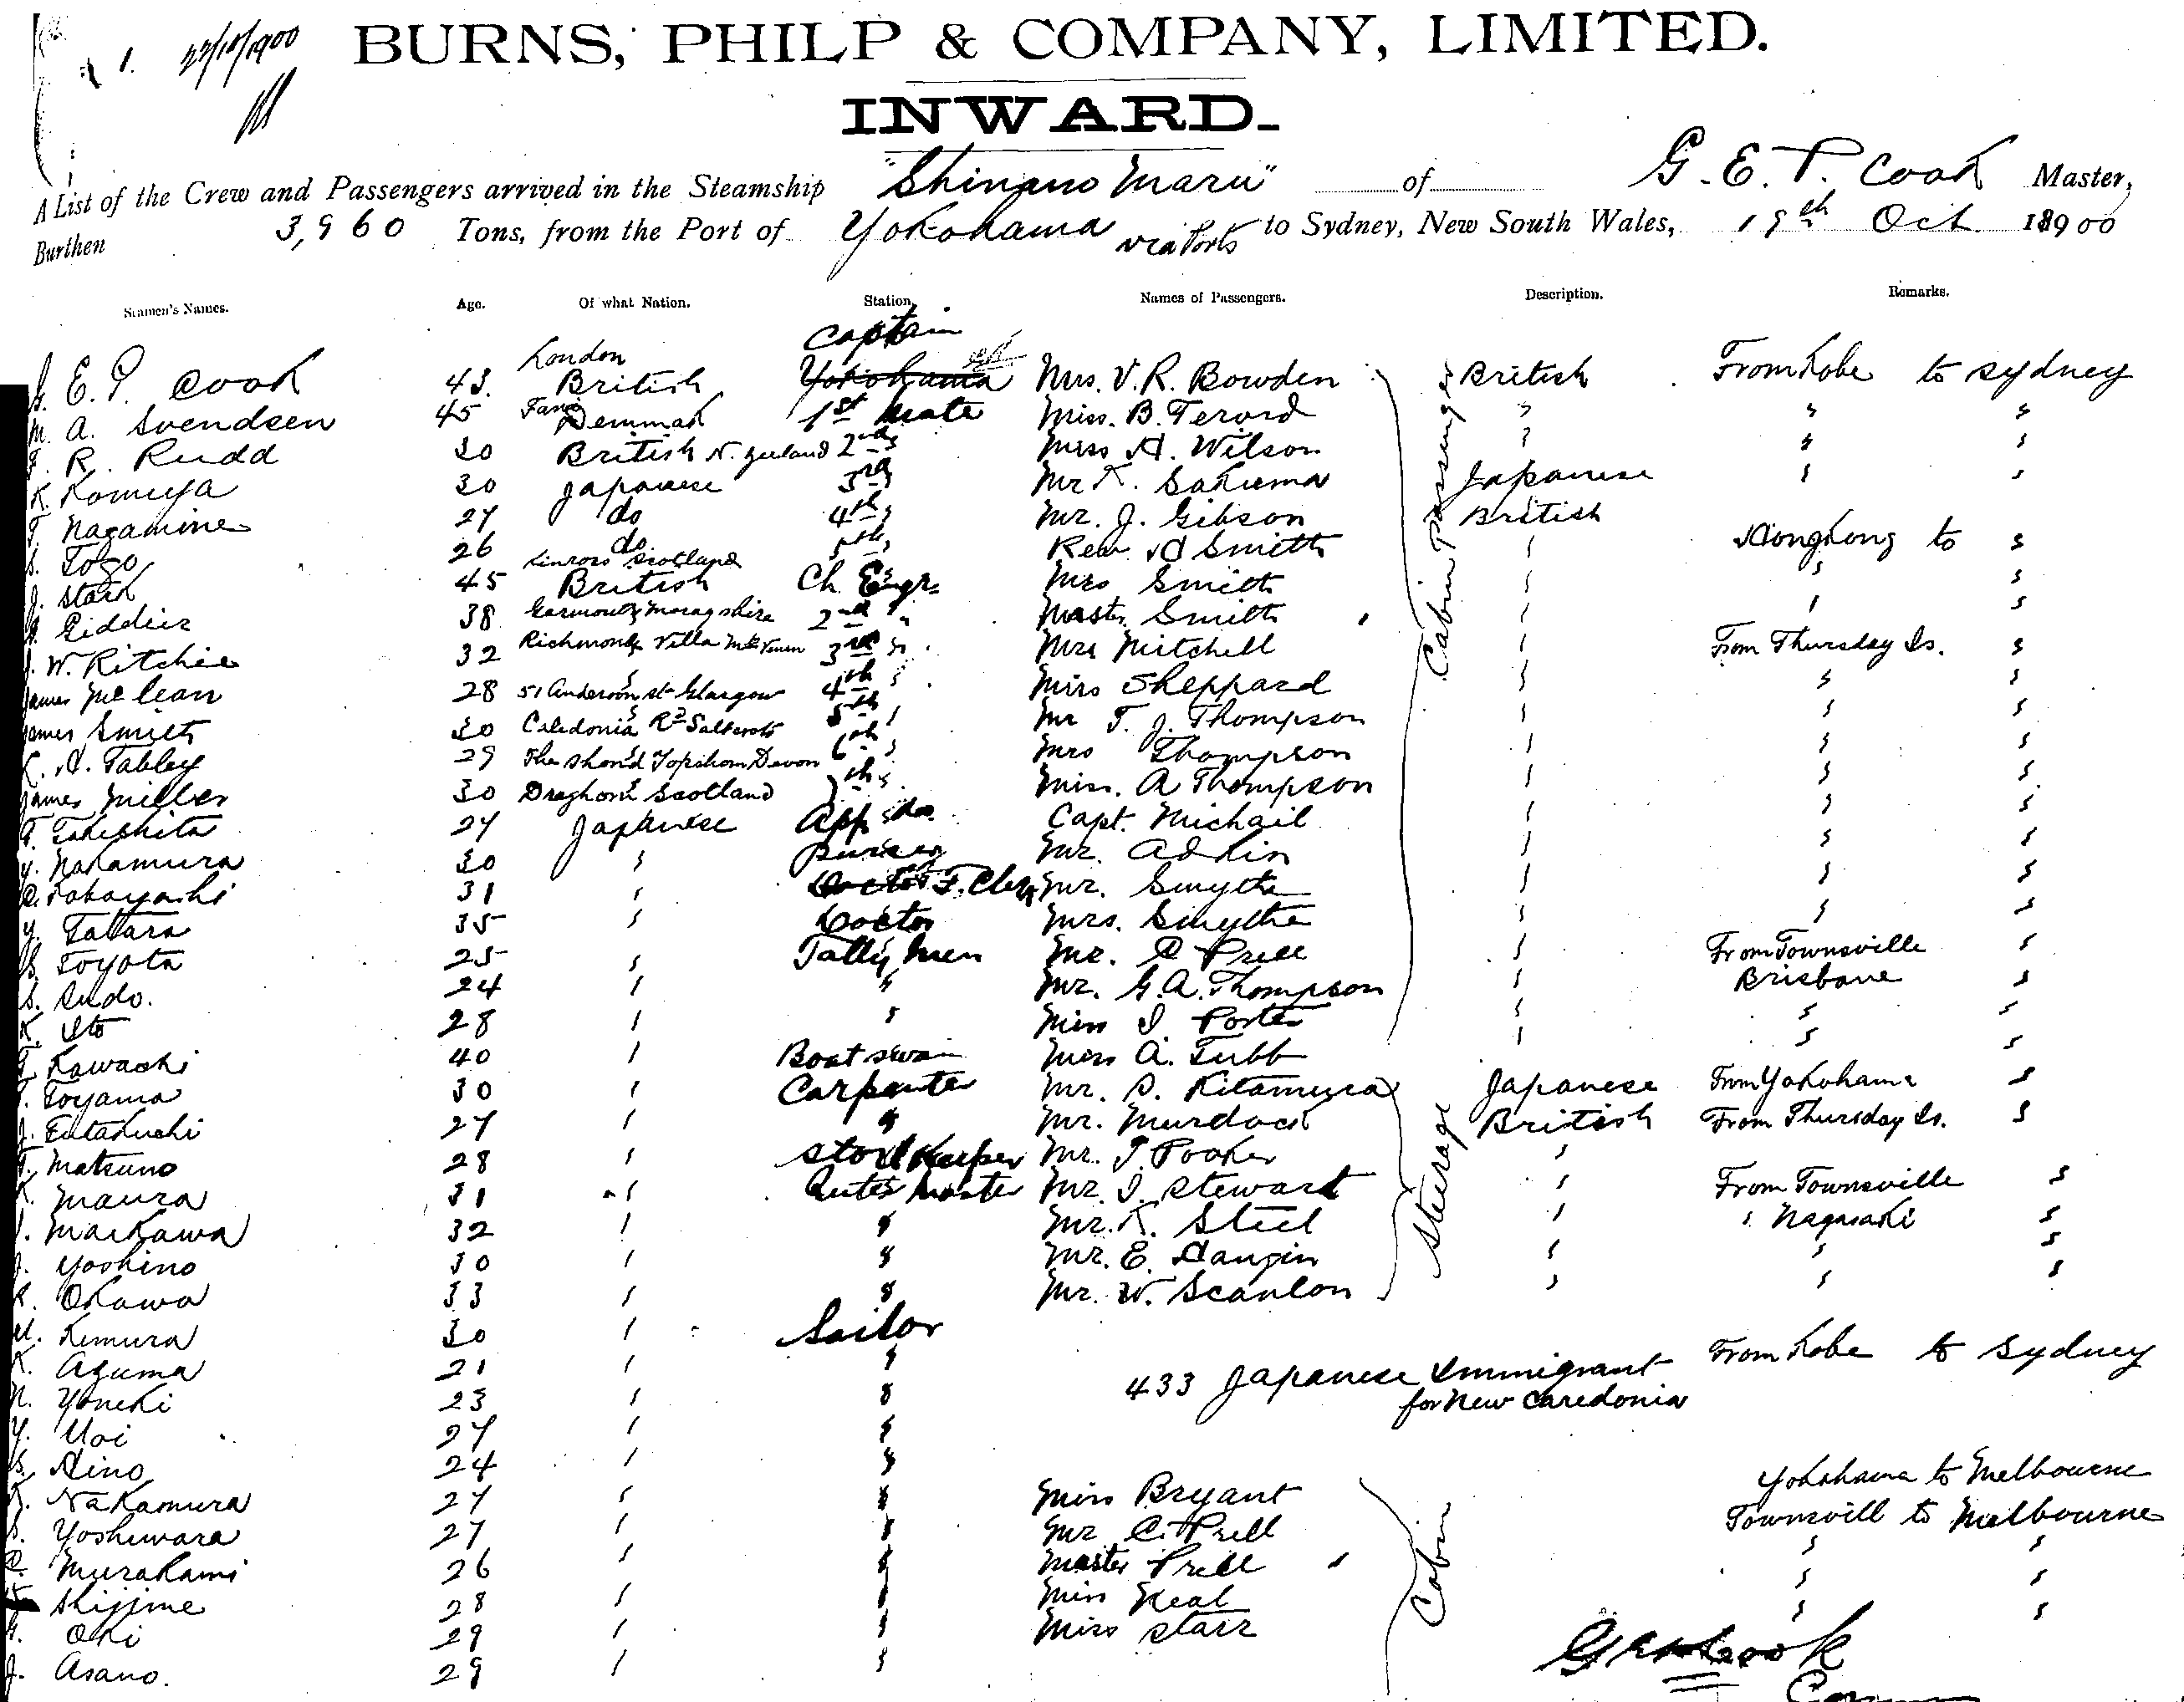 1. 22/10/1900
BURNS, PHILP & COMPANY, LIMITED.
INWARD.
A List of the Crew and Passengers arrived in the Steamship "Shinano Maru" of G. E. P. Cook Master,
Burthen 3,960 Tons, from the Port of Yokohama via Ports to Sydney, New South Wales, 19th Oct 18900
Seamen's Names. Age. Of what Nation. Station. Names of Passengers. Description. Remarks.
Captain
London
G. E. P. Cook 43. British Yokohama Mrs. V. R. Bowden British From Kobe to Sydney
M. A. Svendsen 45 Fano Denmak 1st Mate Miss. B. Terord " " "
R. Rudd 30 British N. Zeeland 2nd " Miss H. Wilson " " "
K. Komiya 30 Japanese 3rd " Mr K. Sakuma Japanese " "
T. Nagamine 27 do 4th " Mr. J. Gibson British
S. Togo 26 do 5th " Rev. H Smith " Hongkong to "
Kinross Scotland
J. Stark 45 British Ch. Engr. Mrs Smith " " "
Giddies 38 Garmouth Moragshire 2nd " Master Smith " " "
J. W. Ritchie 32 Richmond Villa 3rd " Mrs Mitchell " From Thursday Is. "
James McLean 28 51 Anderson st Glasgow 4th " Miss Sheppard " " "
James Smith 30 Caledonia Rd Saltcoats 5th " Mr T. J. Thompson " " "
H. Tabley 29 The Shond Topshom Devon 6th " Mrs Thompson " " "
James Miller 30 Draghorn Scotland 7th " Miss. A Thompson " " "
T. Takeshita 27 Japanese App do. Capt. Michail " " "
Y. Nakamura 30 " Purser Mr. Adkin " " "
Kobayashi 31 " Doctor F. Clerk Mr. Smythe " " "
Y. Tatara 35 " Doctor Mrs. Smythe " " "
S. Toyota 25 " Tally Men Mr. C Prell " From Townsville "
S. Sudo. 24 " " Mr. G. A. Thompson " Brisbane "
K. Ito 28 " " Miss I Porter " " "
Kawachi 40 " Boatswain Miss A. Tubb " " "
Cabin Passengers
T. Toyama 30 " Carpenter Mr. S. Kitamura Japanese From Yokohama "
J. Futakuchi 27 " " Mr. Murdock British From Thursday Is. "
T. Matsuno 28 " Store Keeper Mr. J. Pooker "
K. Maura 31 " Quter Master Mr. J. Stewart " From Townsville "
Markawa 32 " " Mr. K. Steel " " Nagasaki "
J. Yoshino 30 " " Mr. E. Haugin " " "
K. Okawa 33 " " Mr. W. Scanlon " " "
Steerage
M. Kimura 30 " Sailor
K. Azuma 21 " " 433 Japanese Immigrant From Kobe to Sydney
N. Yoneki 23 " " for New Caredonia
Y. Uoi 27 " "
S. Hino 24 " " Yokohama to Melbourne
K. Nakamura 27 " " Miss Bryant Townsvill to Melbourne
S. Yoshiwara 27 " " Mr C. Prell " "
Murakami 26 " " Master Prell " "
Shijime 28 " " Miss Neal " "
Oki 29 " " Miss Starr
Cabin
J. Asano. 29 " "